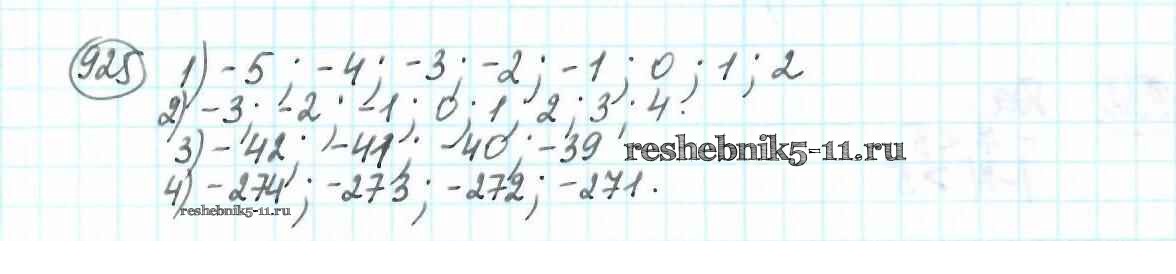 925 1) -5; -4; -3; -2; -1; 0; 1; 2
2) -3; -2; -1; 0; 1; 2; 3; 4.
3) -42; -41; -40; -39 reshebnik5-11.ru
4) -274; -273; -272; -271.
reshebnik5-11.ru